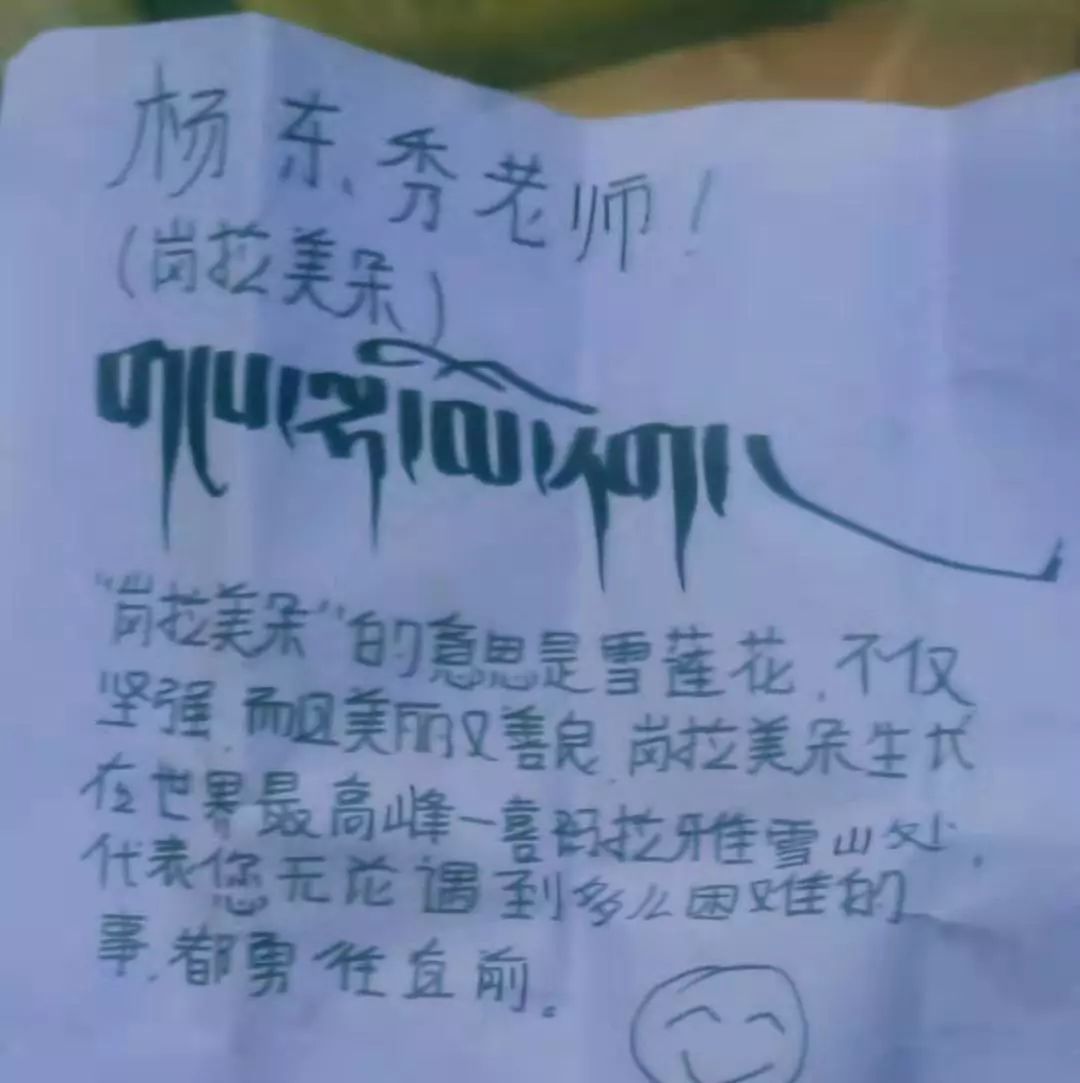 杨东秀老师！
（岗拉美朵）
"岗拉美朵"的意思是雪莲花，不仅
坚强，而且美丽又善良，岗拉美朵生长
在世界最高峰一喜玛拉雅雪山处，
代表您无论遇到多么困难的
事，都勇往直前。